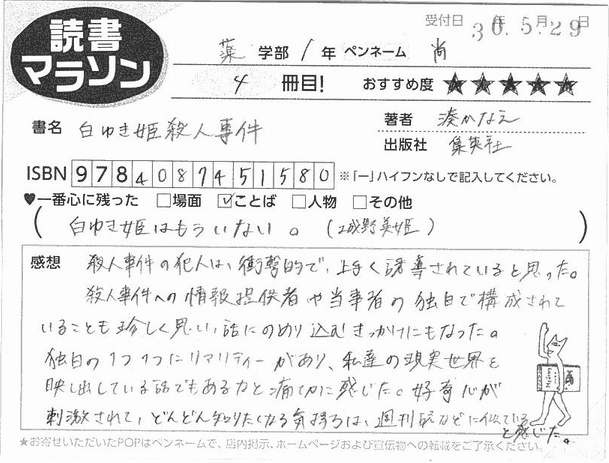 読書
マラソン
受付日 30年5月29日
薬 学部 1年 ペンネーム 尚
4 冊目! おすすめ度 ★★★★★
書名 白ゆき姫殺人事件
著者 湊かなえ
出版社 集英社
ISBN 9784087451580 ※「−」ハイフンなしで記入してください。
♥一番心に残った □場面 ☑ことば □人物 □その他
(白ゆき姫はもういない。(城野美姫))
感想 殺人事件の犯人は、衝撃的で、上手く誘導されていると思った。
殺人事件への情報提供者や当事者の独白で構成されて
いることも珍しく思い、話にのめり込むきっかけにもなった。
独白の1つ1つにリアリティーがあり、私達の現実世界を
映し出している話でもあるなと痛くに感じた。好奇心が
刺激されて、どんどん知りたくなる気持ちは、週刊誌などに似ている
と感じた。
★お寄せいただいたPOPはペンネームで、店内掲示、ホームページおよび宣伝物への転載をご了承ください。